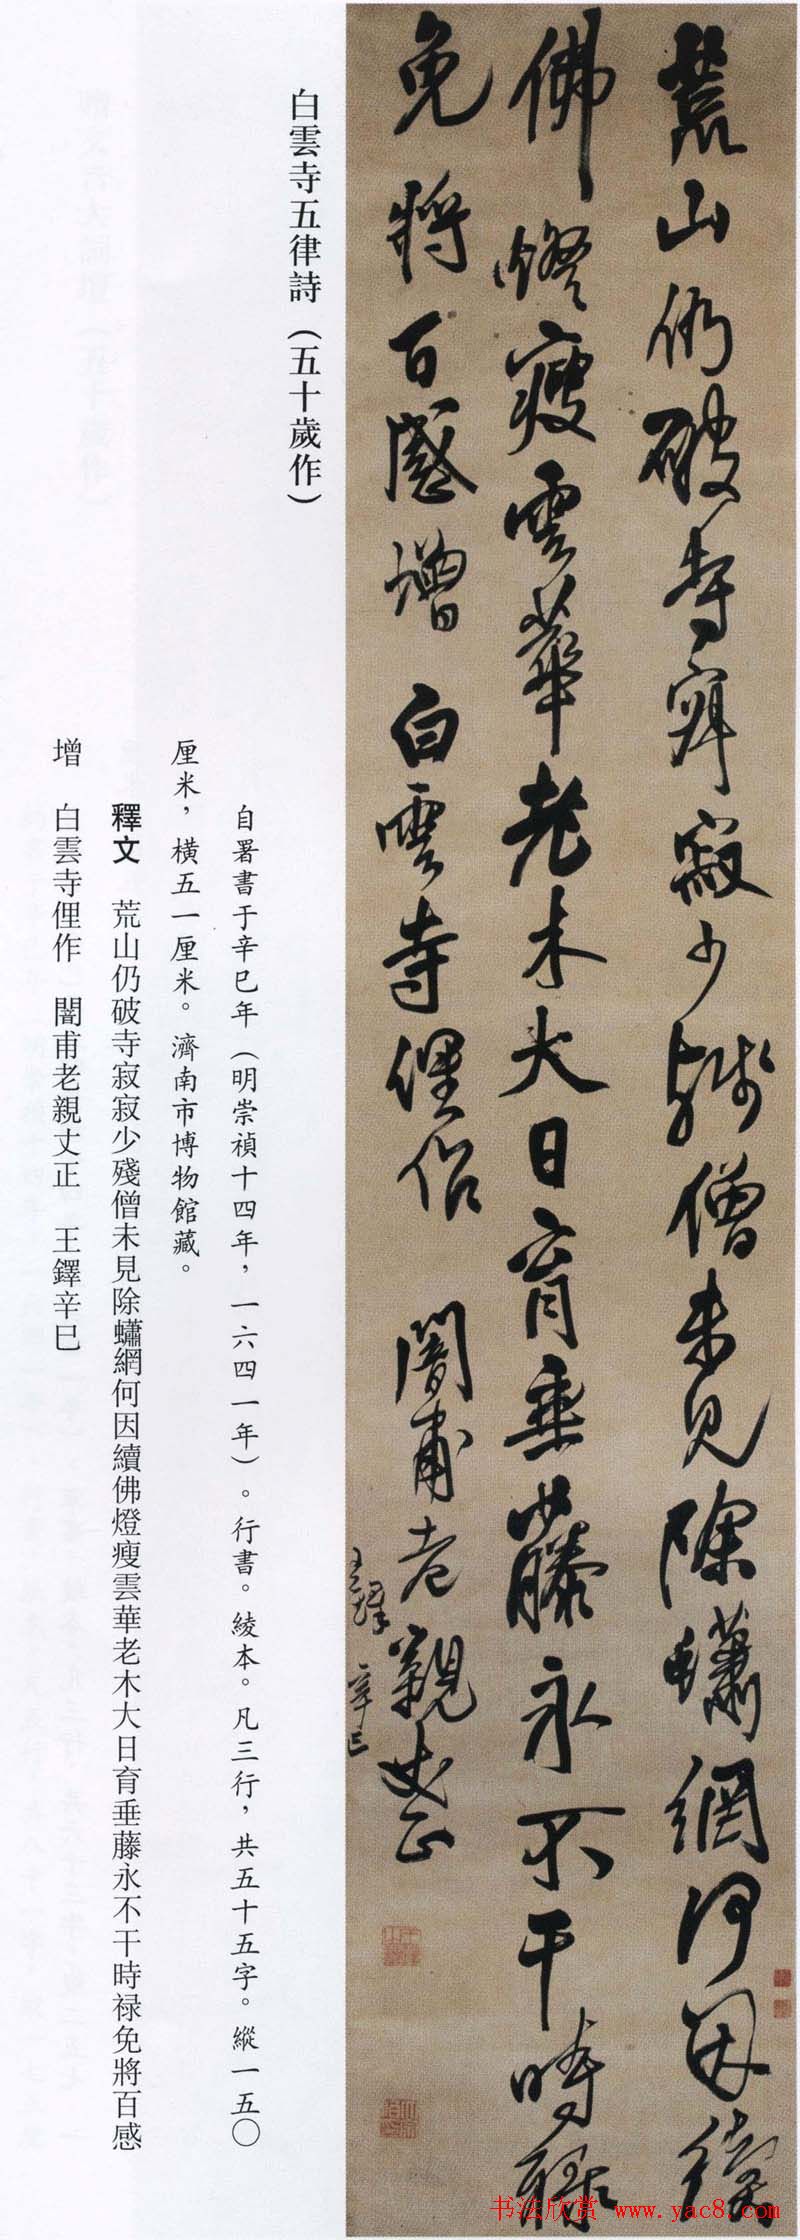 荒山仍破寺寂寂少殘僧未見除蠨網何因續
佛燈瘦雲華老木大日育垂藤永不干時祿
免將百感增 白雲寺俚作 闇甫老親丈正
王鐸 辛巳
白雲寺五律詩（五十歲作）
自署書于辛巳年（明崇禎十四年，一六四一年）。行書。綾本。凡三行，共五十五字。縱一五〇
厘米，橫五一厘米。濟南市博物館藏。
釋文 荒山仍破寺寂寂少殘僧未見除蠨網何因續佛燈瘦雲華老木大日育垂藤永不干時禄免將百感
增 白雲寺俚作 闇甫老親丈正 王鐸辛巳
书法欣赏 www.yac8.com